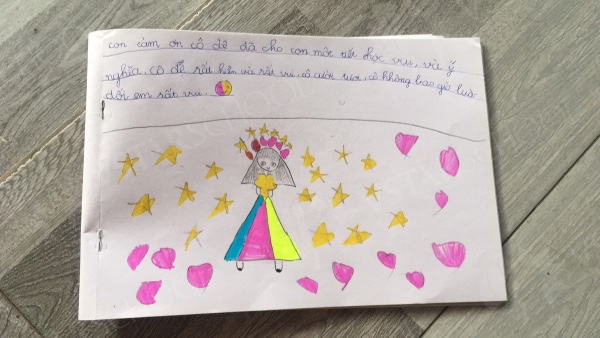 con cảm ơn cô đã đã cho con một tiết học vui, và ý
nghĩa, cô dễ rất hiền và rất vui, cô cười tươi, cô không bao giờ luà
dối em rất vui.